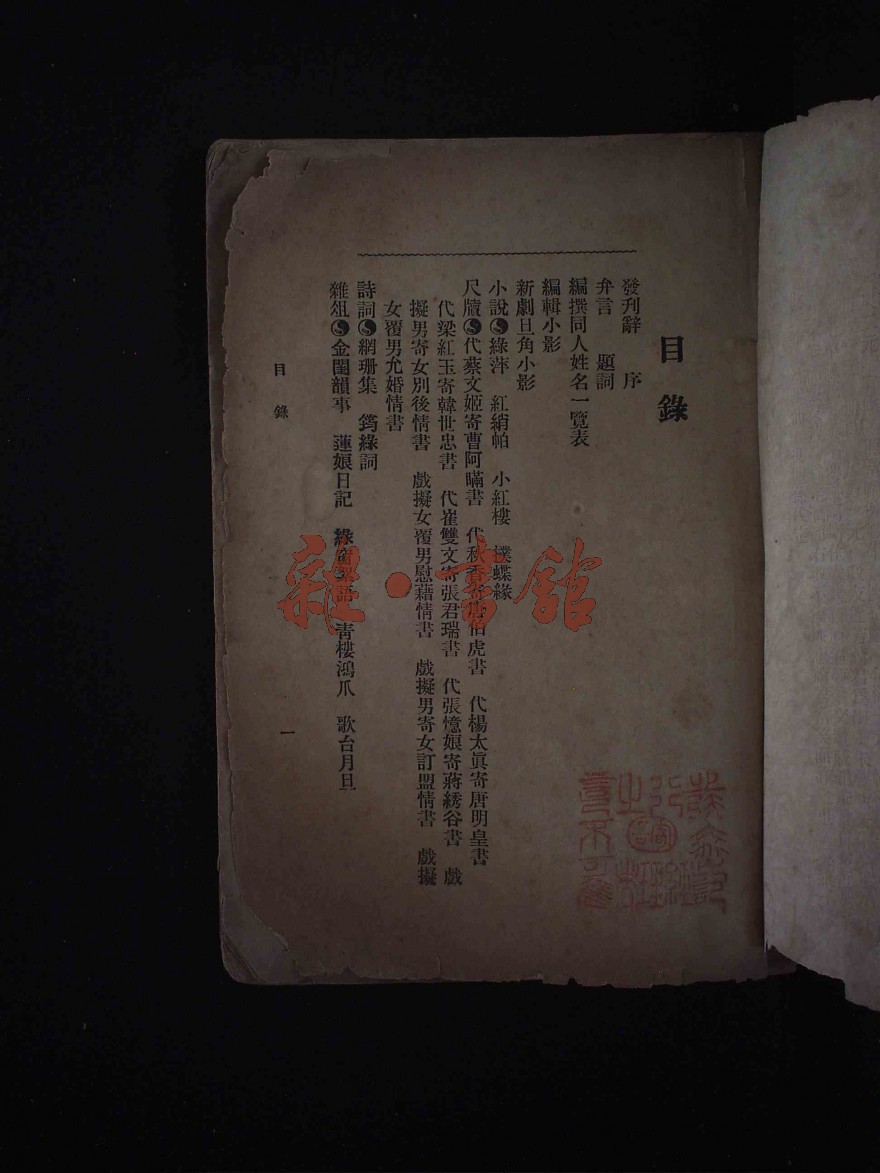 目錄
發刊辭　序
弁言　題詞
編撰同人姓名一覽表
編輯小影
新劇旦角小影
小說　綠萍　紅綃帕　小紅樓　撲蝶緣
尺牘　代蔡文姬寄曹阿瞞書　代秋香寄唐伯虎書　代楊太眞寄唐明皇書
代梁紅玉寄韓世忠書　代崔雙文寄張君瑞書　代張憶娘寄蔣綉谷書　戲
擬男寄女別後情書　戲擬女覆男慰藉情書　戲擬男寄女訂盟情書　戲擬
女覆男允婚情書
詩詞　網珊集　筠綠詞
雜俎　金閨韻事　蓮娘日記　綠窗　語　青樓鴻爪　歌台月旦
目錄
一
雜·書館